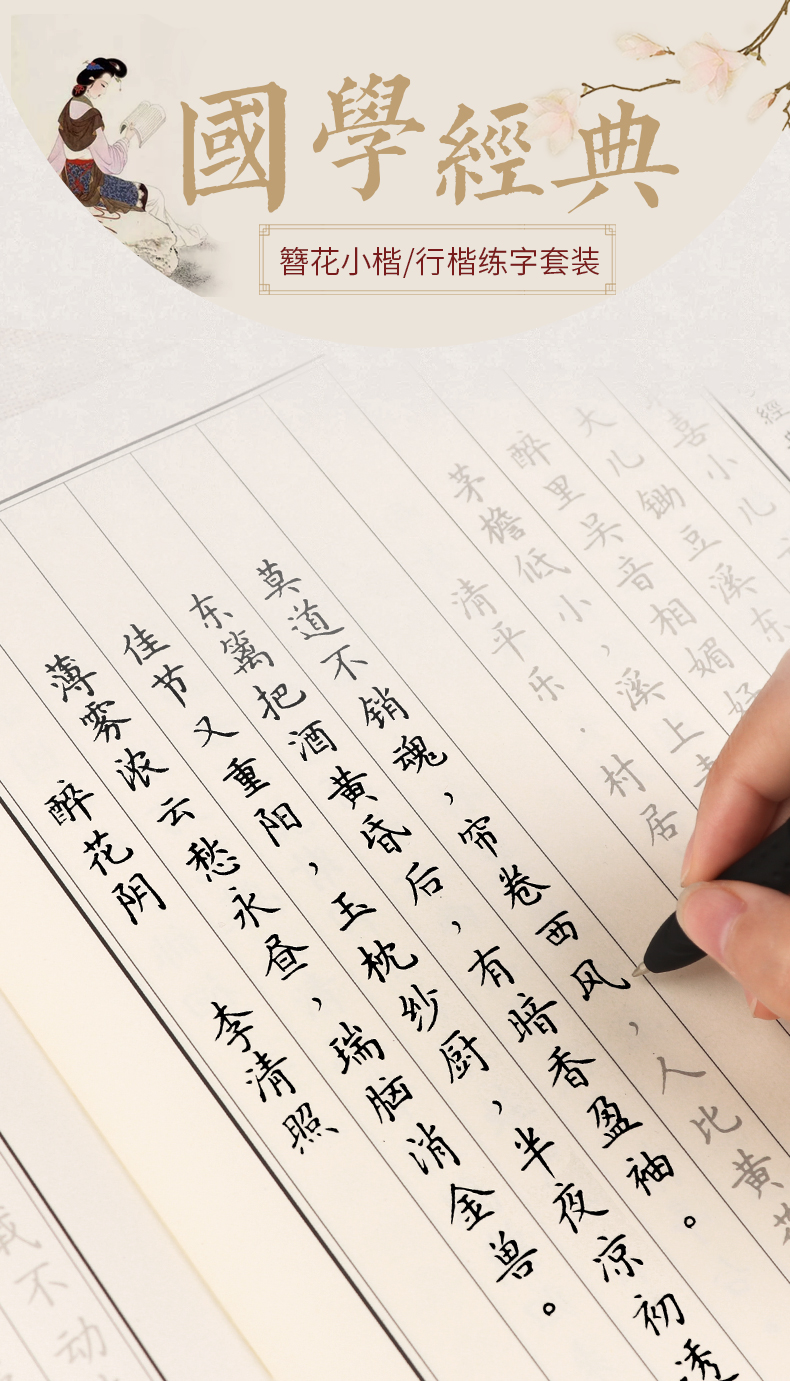 國學經典
簪花小楷/行楷练字套装
醉花阴 李清照
薄雾浓云愁永昼，瑞脑消金兽。
佳节又重阳，玉枕纱厨，半夜凉初透
东篱把酒黄昏后，有暗香盈袖。
莫道不销魂，帘卷西风，人比黄花
清平乐·村居
茅檐低小，溪上青
醉里吴音相媚好
大儿锄豆溪东
喜小儿
經
载不动